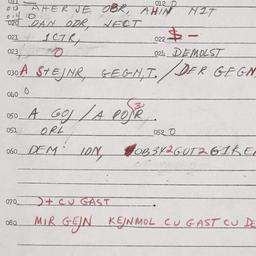 013 AHER JE OBR, AHIN NIT
014 0
020 DAN ODR, JECT
021 1CTR, 022 $ -
023 0 024 DEMOLST
030 A STEJNR, GEGN,T. / DER GEGN
040 0
050 A GOJ / A POJR
051 ORL 052 0
060 DEM! IDN,
070 )+ CU GAST
080 MIR GEJN KEJNMOL CU GAST CU DE